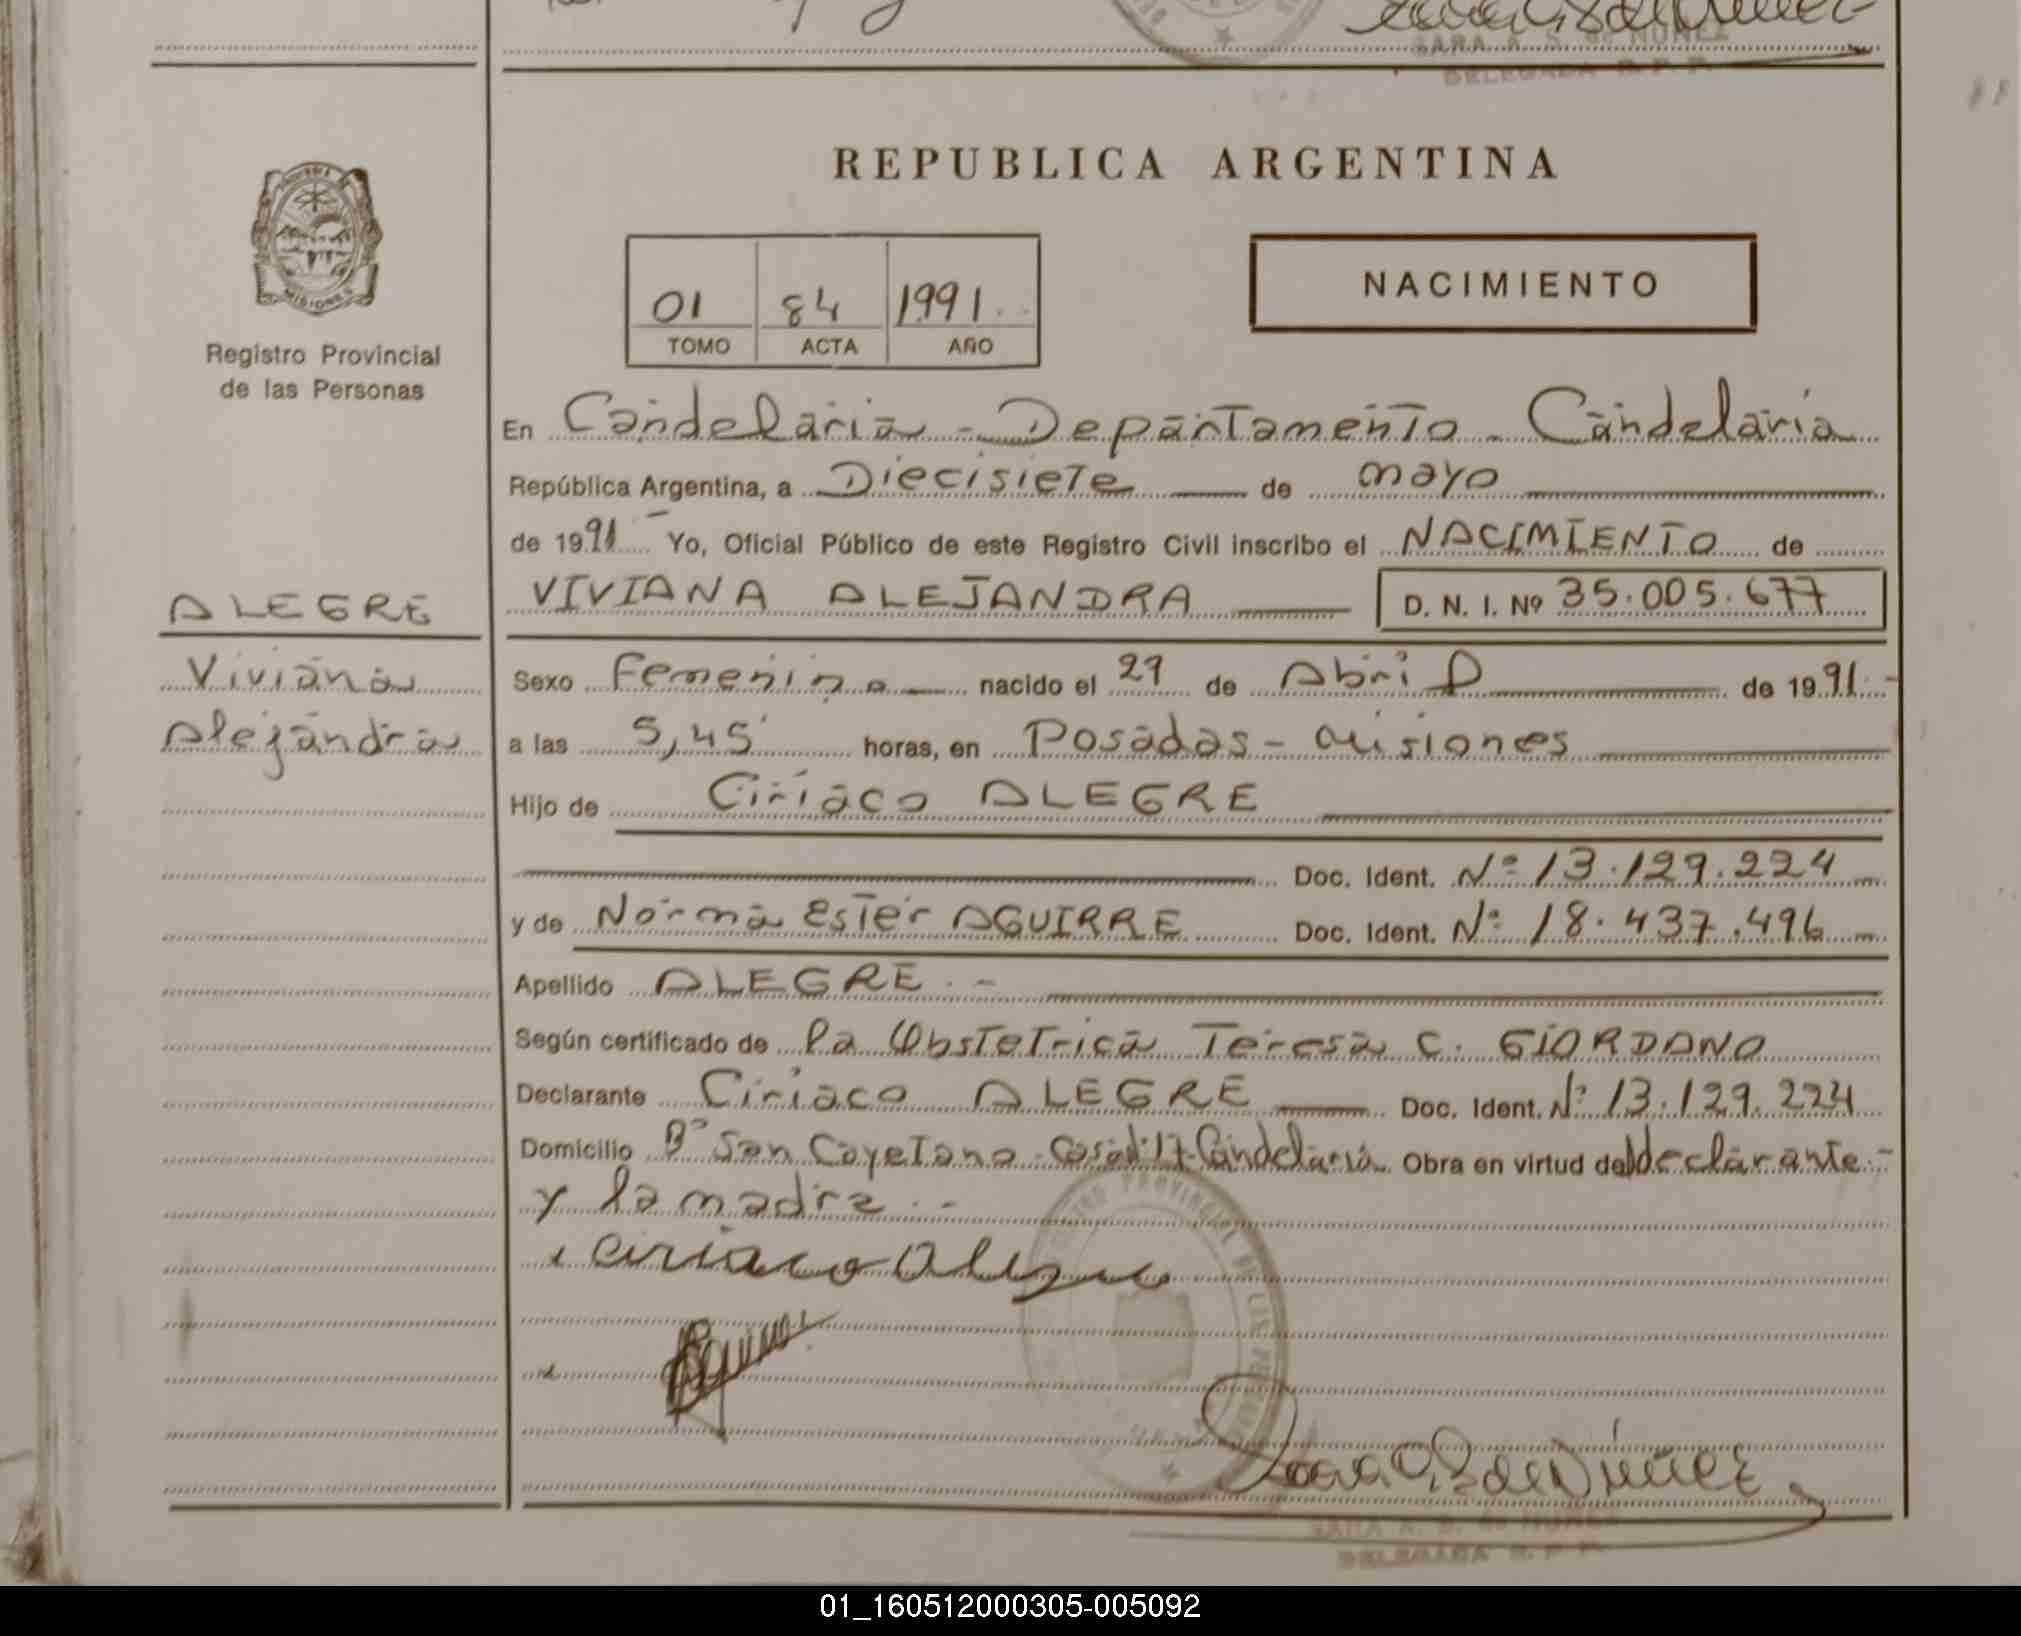 SARA A. S. de NUÑEZ
DELEGADA R. P. P.
REPUBLICA ARGENTINA
MISIONES
Registro Provincial
de las Personas
01 84 1991
TOMO ACTA AÑO
NACIMIENTO
En Candelaria - Departamento - Candelaria
República Argentina, a Diecisiete de mayo
de 1991 - Yo, Oficial Público de este Registro Civil inscribo el NACIMIENTO de
ALEGRE
VIVIANA ALEJANDRA D. N. I. Nº 35.005.677
Viviana
Sexo Femenino nacido el 29 de Abril de 1991.-
Alejandra
a las 5,45' horas, en Posadas - Misiones
Hijo de Ciriaco ALEGRE
Doc. Ident. Nº 13.129.224
y de Norma Ester AGUIRRE Doc. Ident. Nº 18.437.496
Apellido ALEGRE . -
Según certificado de la Obstetrica Teresa C. GIORDANO
Declarante Ciriaco ALEGRE Doc. Ident. Nº 13.129.224
Domicilio Bº San Cayetano - Candelaria Obra en virtud del declarante.-
y la madre . -
Ciriaco Alegre
Sara A S de Núñez
SARA A. S. de NUÑEZ
DELEGADA R. P. P.
01_160512000305-005092